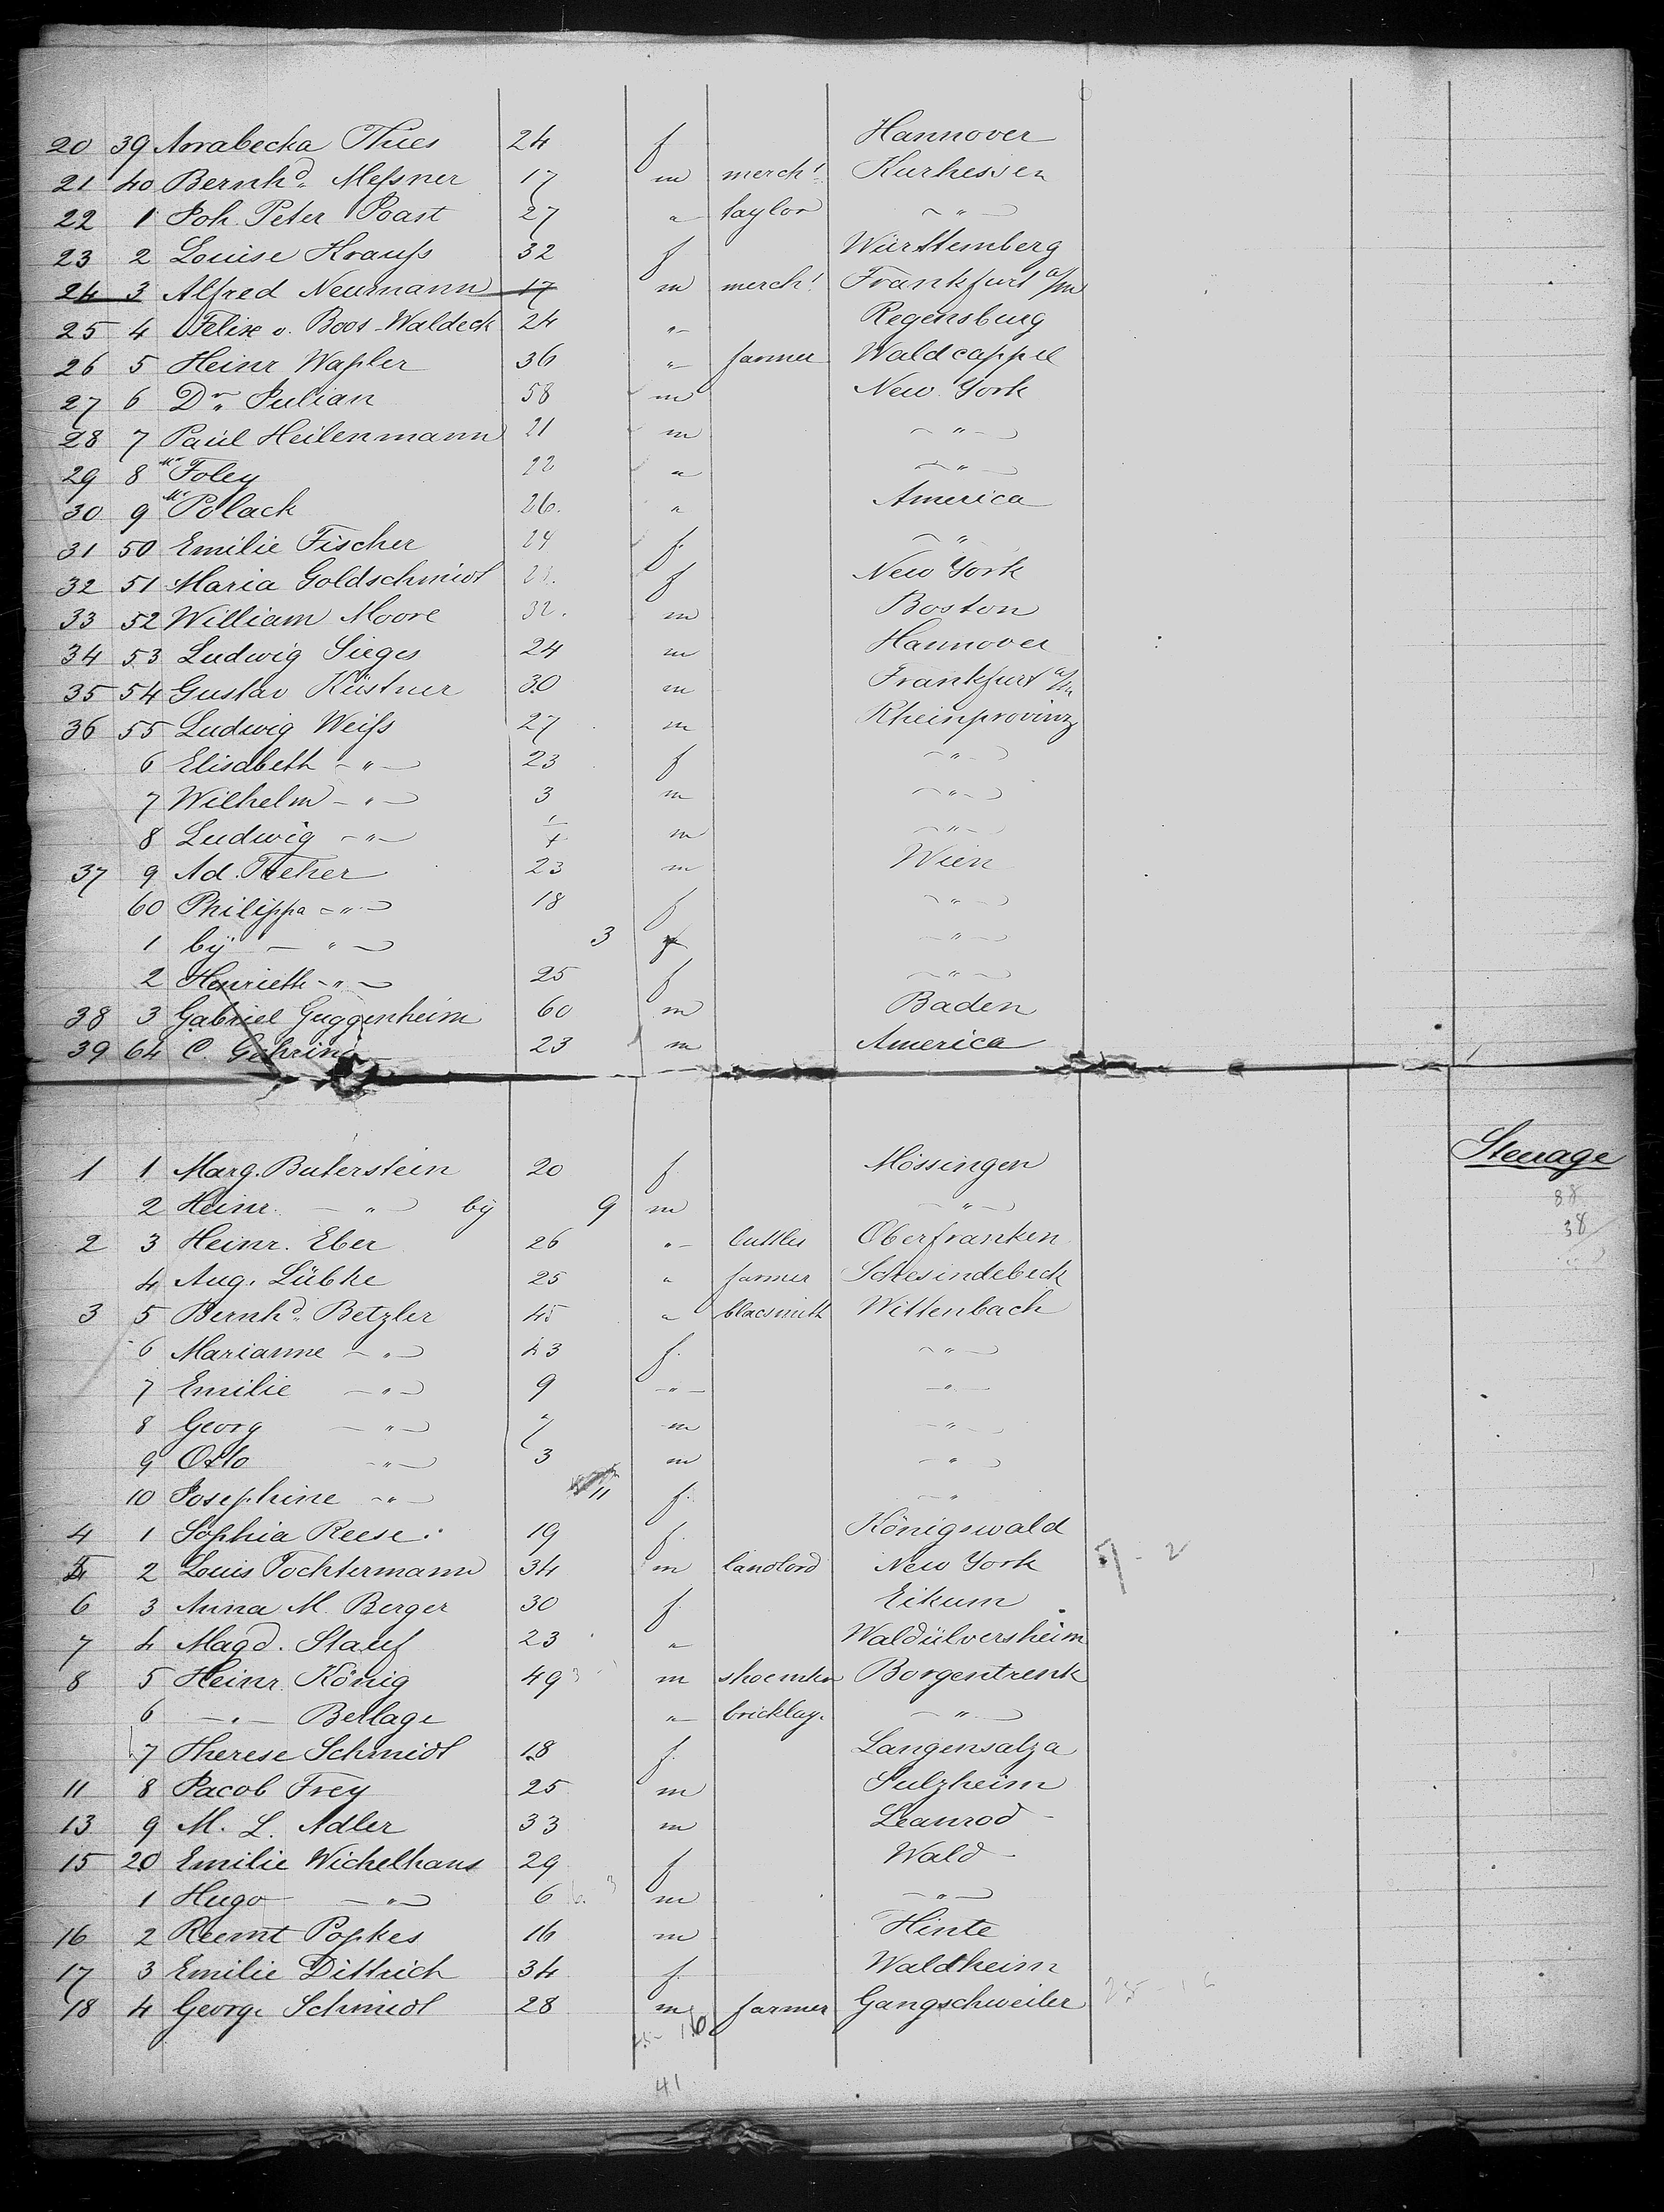 20 39 Anabecka Thies 24 f Hannover
21 40 Bernhd. Meßner 17 m mercht. Kurhessen
22 1 Joh. Peter Poast 27 " taylor "
23 2 Louise Krauß 32 f Württemberg
24 3 Alfred Neumann 17 m mercht. Frankfurt a/m
25 4 Felix v. Boos-Waldeck 24 " Regensburg
26 5 Heinr Waßler 36 " farmer Waldcappel
27 6 Dr. Julian 58 m New York
28 7 Paul Heilenmann 21 m "
29 8 Mr Foley 22 " "
30 9 Mr Polack 26. " America
31 50 Emilie Fischer 24 f. "
32 51 Maria Goldschmidt f New York
33 52 William Moore 32. m Boston
34 53 Ludwig Sieges 24 m Hannover
35 54 Gustav Küstner 30 m Frankfurt a/m
36 55 Ludwig Weiß 27 m Rheinprovinz
6 Elisabeth " 23 f "
7 Wilhelm " 3 m "
8 Ludwig " m "
37 9 Ad. Treher 23 m Wien
60 Philippa " 18 f "
1 bÿ " 3 "
2 Henrieth " 25 f "
38 3 Gabriel Guggenheim 60 m Baden
39 64 C. Gehring 23 m America
Steerage
1 1 Marg. Buterstein 20 f. Mössingen
88
2 Heinr. " bÿ 9 m "
38
2 3 Heinr. Eber 26 " Oberfranken
4 Aug. Lübke 25 " farmer Schesindebeck
3 5 Bernhd. Betzler 45 " blacsmith Wittenbach
6 Marianne " 43 f. "
7 Emilie " 9 " "
8 Georg " 7 m "
9 Otto " 3 m "
10 Josephine " 11 f. "
4 1 Sophia Reese 19 f. Königswald
2 Louis Tochtermann 34 m landlord New York
6 3 Anna M. Berger 30 f. Eikum
7 4 Magd. Stauf 23 " Waldülversheim
8 5 Heinr. König 49 m shoemker Borgentrenk
6 " Bellage " bricklay. "
7 Therese Schmidt 18 f. Langensalza
11 8 Jacob Frey 25 m Sulzheim
13 9 M. L. Adler 33 m Leanrod
15 20 Emilie Wichelhaus 29 f Wald
1 Hugo " 6 m "
16 2 Reemt Popkes 16 m Hinte
17 3 Emilie Dittrich 34 f. Waldheim
18 4 George Schmidt 28 m farmer Gangschweiler
41